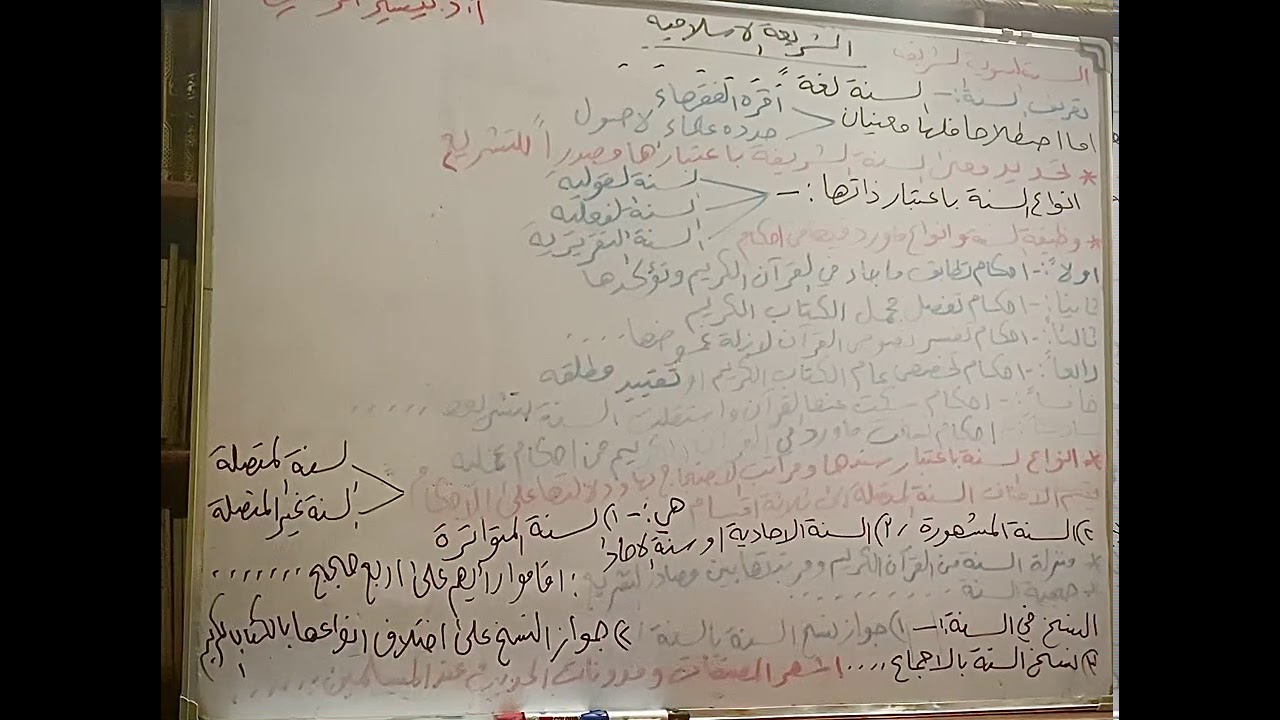 الشريعة الاسلامية
السنة النبوية الشريفة
تعريف السنة :- السنة لغةً
اما اصطلاحا فلها معنيان
أقره الفقهاء
حدده علماء الاصول
* تحديد معنى السنة الشريفة باعتبارها مصدراً للتشريع
انواع السنة باعتبار ذاتها :-
السنة القولية
السنة الفعلية
السنة التقريرية
* وظيفة السنة وانواع ماورد فيها من احكام
اولاً :- احكام تطابق ماجاء في القرآن الكريم وتؤكدها
ثانياً :- احكام تفصل مجمل الكتاب الكريم
ثالثاً :- احكام تفسر نصوص القرآن لازلة غموضها .....
رابعاً :- احكام تخصص عام الكتاب الكريم او تقييد مطلقه
خامساً :- احكام سكت عنها القرآن واستقلت السنة بتشريعها .....
احكام ماورد في من احكام عملية
* انواع السنة باعتبار سندها ومراتب الاحتجاج بها ودلالتها على الاحكام
السنة المتصلة
السنة غير المتصلة
السنة المتصلة الى ثلاثة اقسام
هي :- ١) السنة المتواترة
٢) السنة المشهورة ٣) السنة الاحادية او سنة الاحاد
* منزلة السنة من القرآن الكريم ومرتبتها بين مصادر التشريع
* حجية السنة .......... : اقاموا رأيهم على اربع حجج .......
النسخ في السنة :- ١) جواز نسخ السنة بالسنة ٢) جواز النسخ على اختلاف انواعها بالكتاب الكريم
٣) نسخ السنة بالاجماع .... اشهر المصنفات ومدونات الحديث عند المسلمين .....